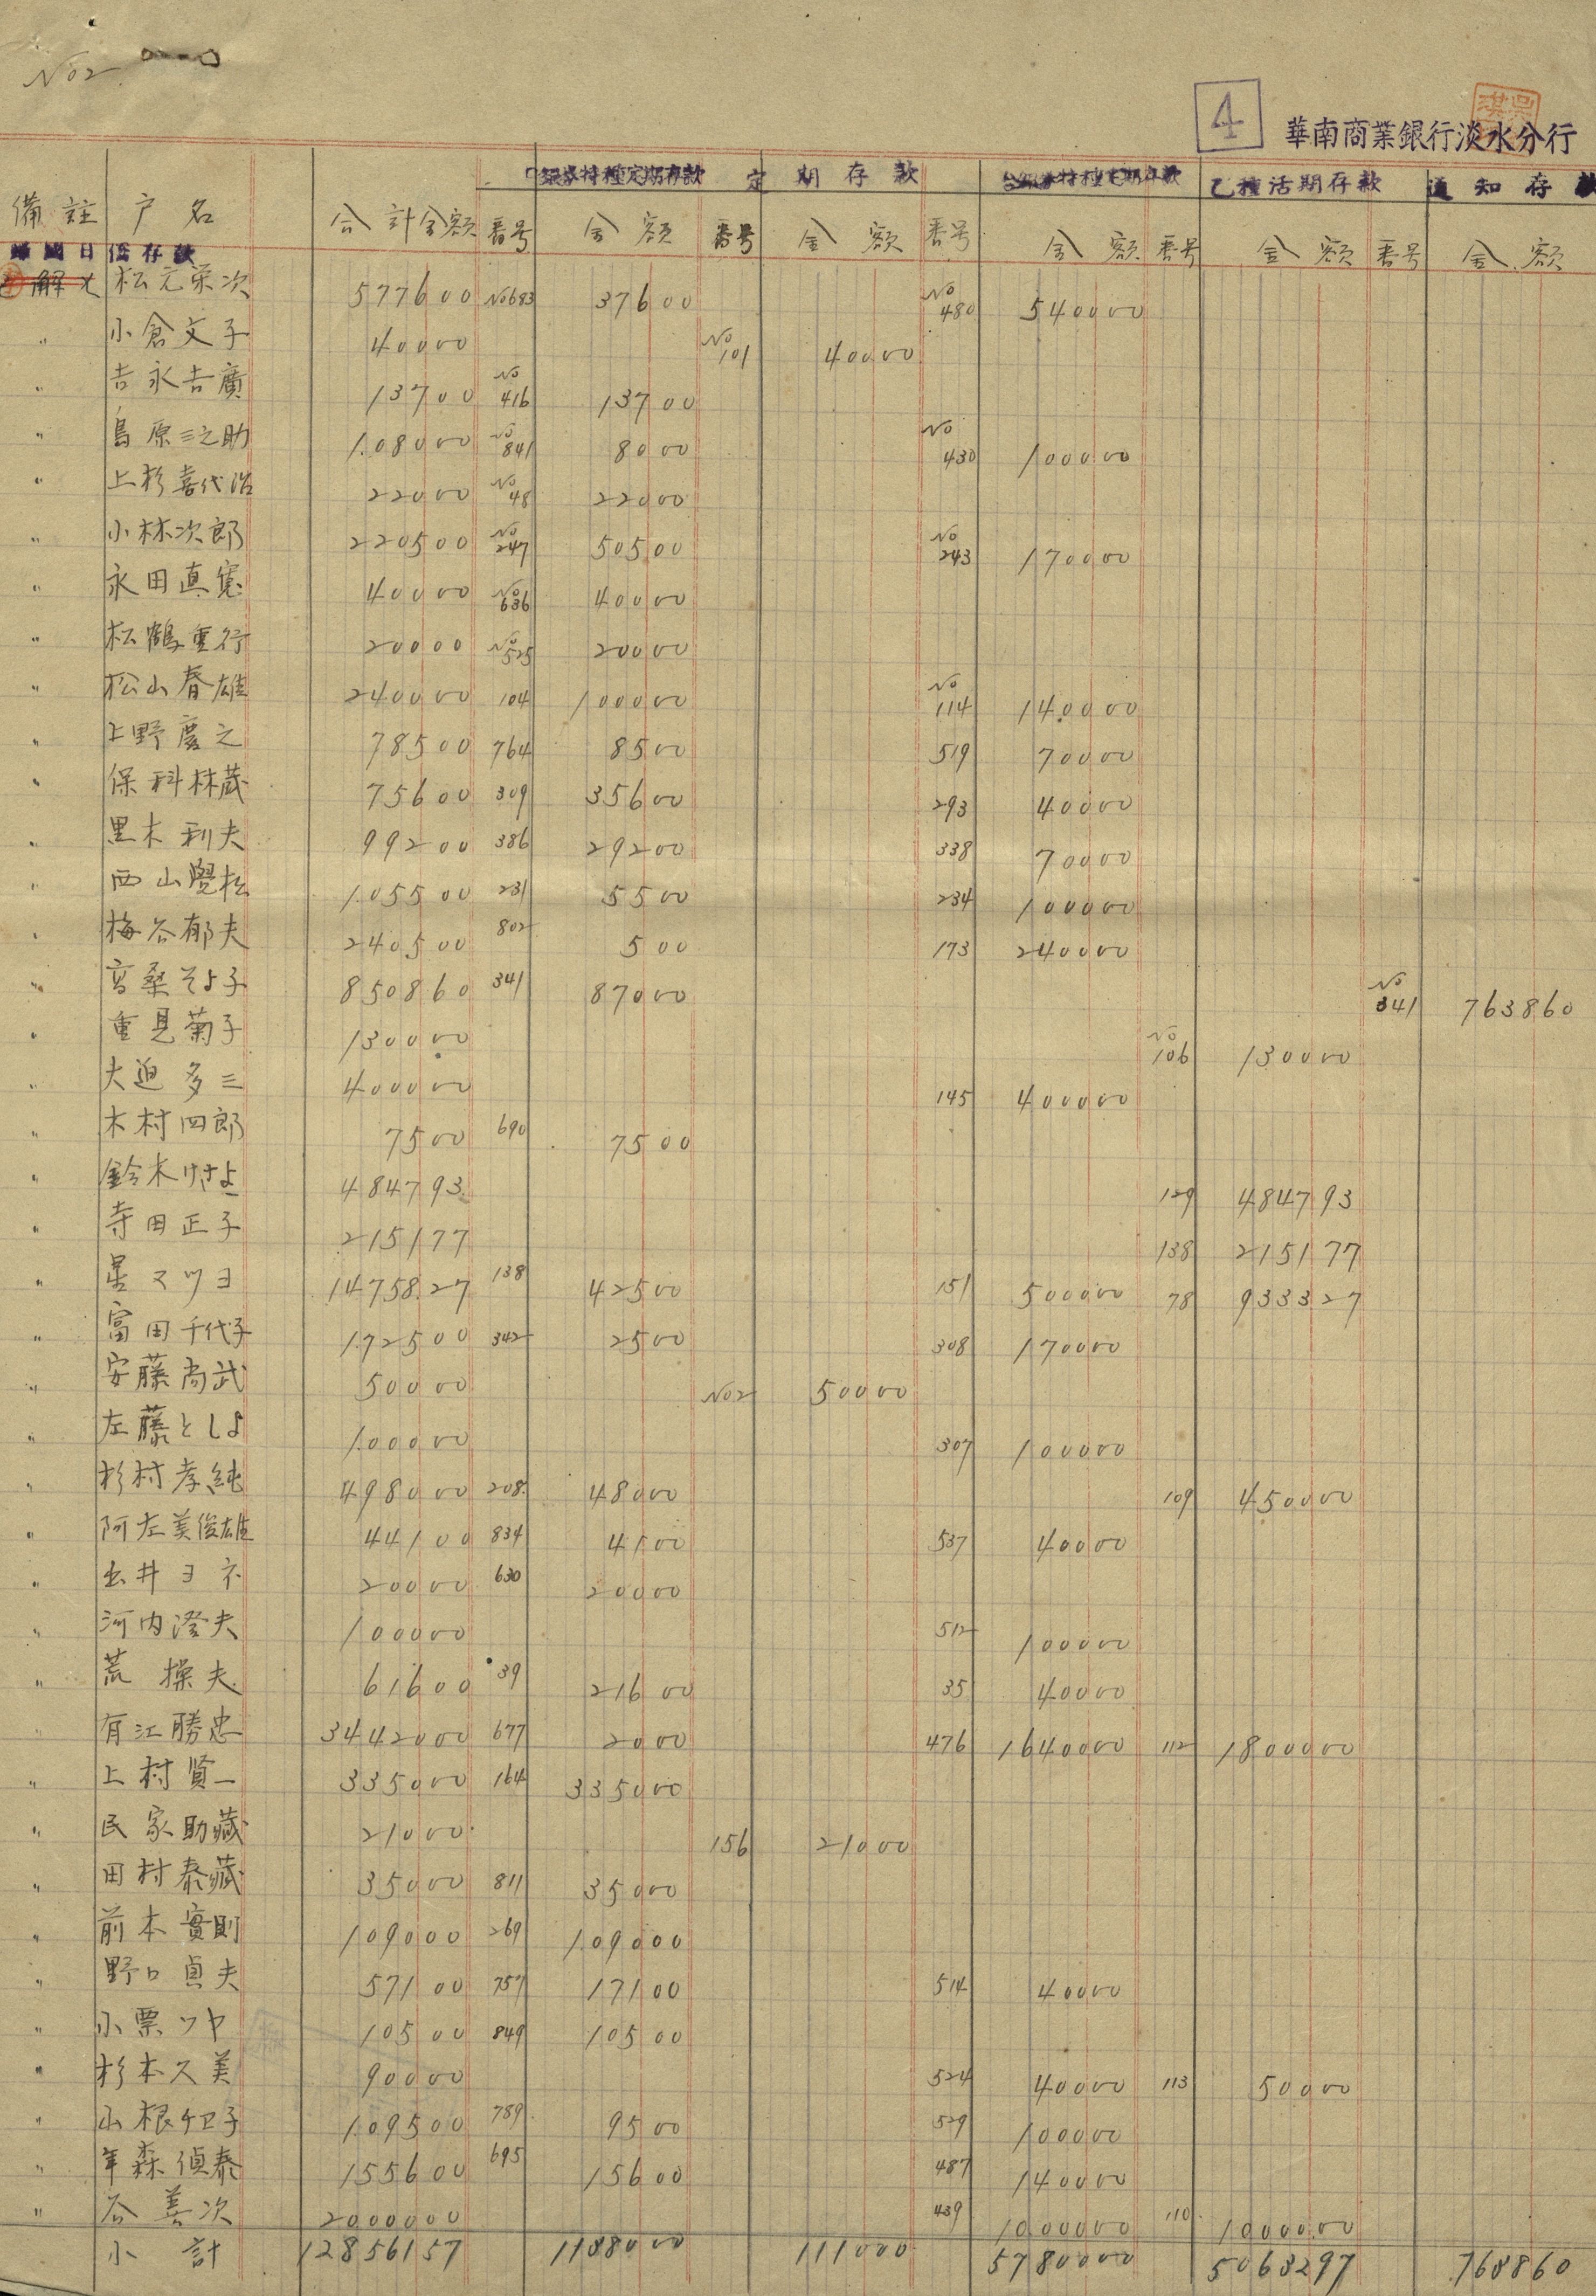 No2
4
華南商業銀行淡水分行
定期存款 乙種活期存款 通知存款
備註 户名 合計金額 番号 金額 番号 金額 番号 金額 番号 金額 番号 金額
國日僑存款
解× 松元栄次 577600 No683 37600 No480 540000
〃 小倉文子 40000 No101 40000
〃 吉永吉廣 13700 No416 13700
〃 島原三之助 108000 No841 8000 No430 100000
〃 上杉喜代治 22000 No48 22000
〃 小林次郎 220500 No247 50500 No243 170000
〃 永田真寛 40000 No636 40000
〃 松鶴重行 20000 No525 20000
〃 松山春雄 240000 104 100000 No114 140000
〃 上野慶之 78500 764 8500 519 70000
〃 保科林蔵 75600 309 35600 293 40000
〃 黒木利夫 99200 386 29200 338 70000
〃 西山覺松 105500 231 5500 234 100000
〃 梅谷郁夫 240500 802 500 173 240000
〃 高桑そよ子 850860 341 87000 No341 763860
〃 重見菊子 130000 No106 130000
〃 大迫多三 400000 145 400000
〃 木村四郎 7500 690 7500
〃 鈴木けさよ 484793 129 484793
〃 寺田正子 215177 138 215177
〃 星マツヨ 1475827 138 42500 151 500000 78 933327
〃 富田千代子 172500 342 2500 308 170000
〃 安藤尚武 50000 No2 50000
〃 左藤としよ 100000 307 100000
〃 杉村孝純 498000 208 48000 109 450000
〃 阿左美俊雄 44100 834 4100 537 40000
〃 玉井ヨネ 20000 630 20000
〃 河内澄夫 100000 512 100000
〃 荒操夫 61600 39 21600 35 40000
〃 有江勝忠 3442000 677 2000 476 1640000 112 1800000
〃 上村賢一 335000 164 335000
〃 民家助藏 21000 156 21000
〃 田村泰藏 35000 811 35000
〃 前本實則 109000 269 109000
〃 野口貞夫 57100 757 17100 514 40000
〃 小栗ツヤ 10500 849 10500
〃 杉本久美 90000 524 40000 113 50000
〃 山根ケ子 109500 789 9500 529 100000
〃 年森偵泰 155600 695 15600 487 140000
〃 谷善次 2000000 439 1000000 110 1000000
小計 12856157 1138000 111000 5780000 5063297 763860